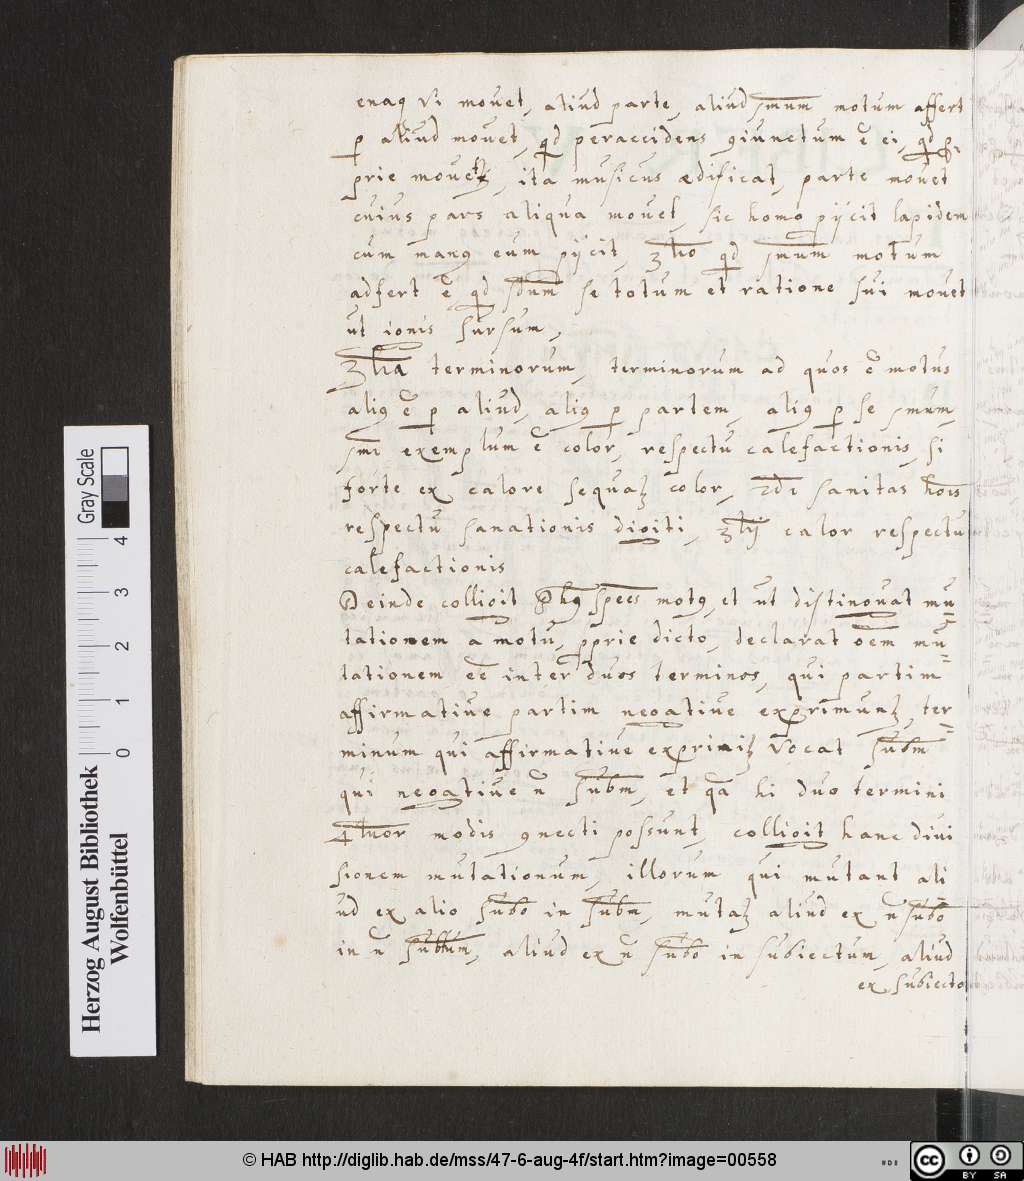 enaq vi movet, aliud parte, aliud smum motum affert
p aliud movet, qd peraccidens 9iunctum ē ei, qd p
prie movet, ita musicus ædificat, parte movet
cuius pars aliqua movet, sic homo piicit lapidem
cum man9 eum piicit, 3tio qd smum motum
adfert ē qd sdum se totum et ratione sui movet
ut ignis sursum,
3tia terminorum, terminorum ad quos ē motus
aliq ē p aliud, aliq p partem, aliq p se smum,
smi exemplum ē color, respectu calefactionis, si
forte ex calore sequaʒ color, 2di sanitas hois
respectu sanationis digiti, 3tii calor respectu
calefactionis
Deinde colligit Phus spees motq, et ut distinguat mu
tationem a motu, pprie dicto, declarat oem mu=
tationem eē inter duos terminos, qui partim
affirmative partim negative exprimunʒ, ter=
minum qui affirmative exprimiʒ vocat subm
qui negative n̄ subm, et qa hi duo termini
4tuor modis 9necti possunt, colligit hanc divi
sionem mutationum, illorum qui mutant ali
ud ex alio subo in subm, mutaʒ aliud ex n̄ subo
in n̄ subtum, aliud ex n̄ subo in subiectum, aliud
ex subiecto
Gray Scale
0 1 2 3 4
Herzog August Bibliothek
Wolfenbüttel
© HAB http://diglib.hab.de/mss/47-6-aug-4f/start.htm?image=00558
cc BY SA